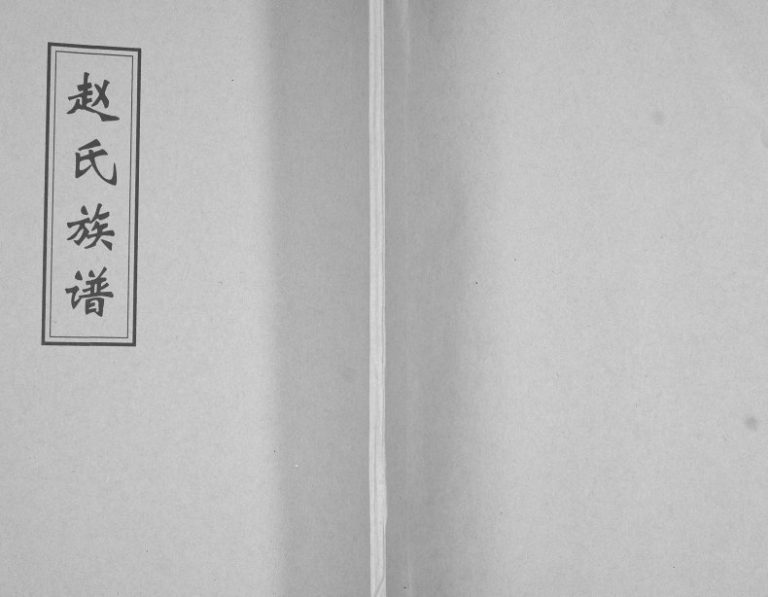 赵氏族谱